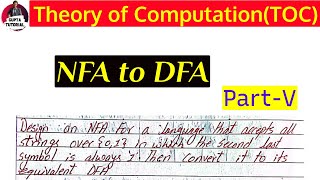 GUPTA
TUTORIAL
Theory of Computation(TOC)
NFA to DFA
Part-V
Design an NFA for a language that accepts all
strings over {0,1} in which the second last
symbol is always 1. Then convert it to its
equivalent DFA.